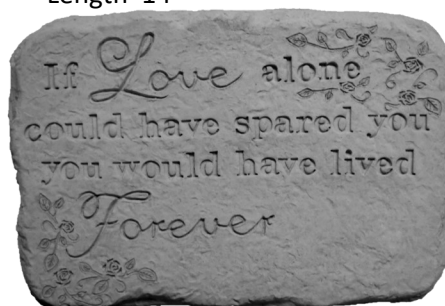 Length 14
If Love alone
could have spared you
you would have lived
Forever